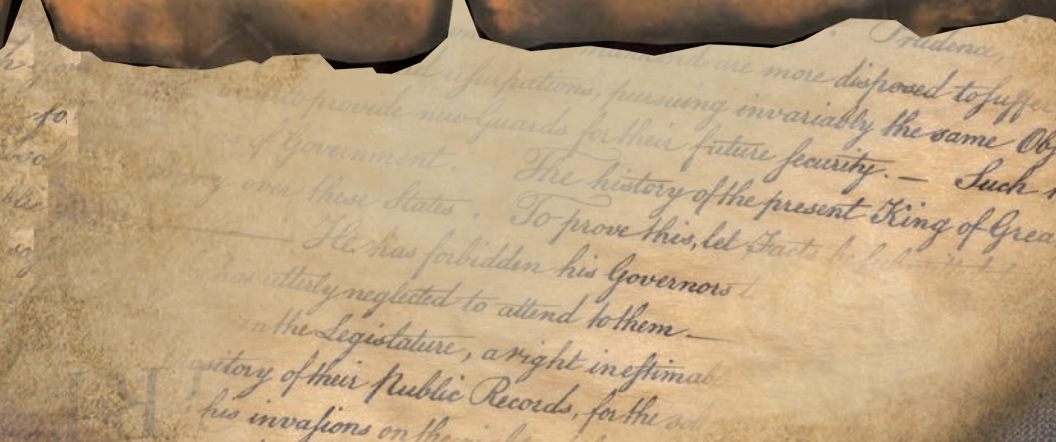 Prudence,
mankind are more disposed to suffer
usurpations, pursuing invariably the same Obj
to provide new Guards for their future security. — Such
of Government. The history of the present King of Grea
over these States. To prove this, let Facts be submitted
He has forbidden his Governors
has utterly neglected to attend to them. —
in the Legislature, a right inestimab
ository of their Public Records, for the so
his invasions on the